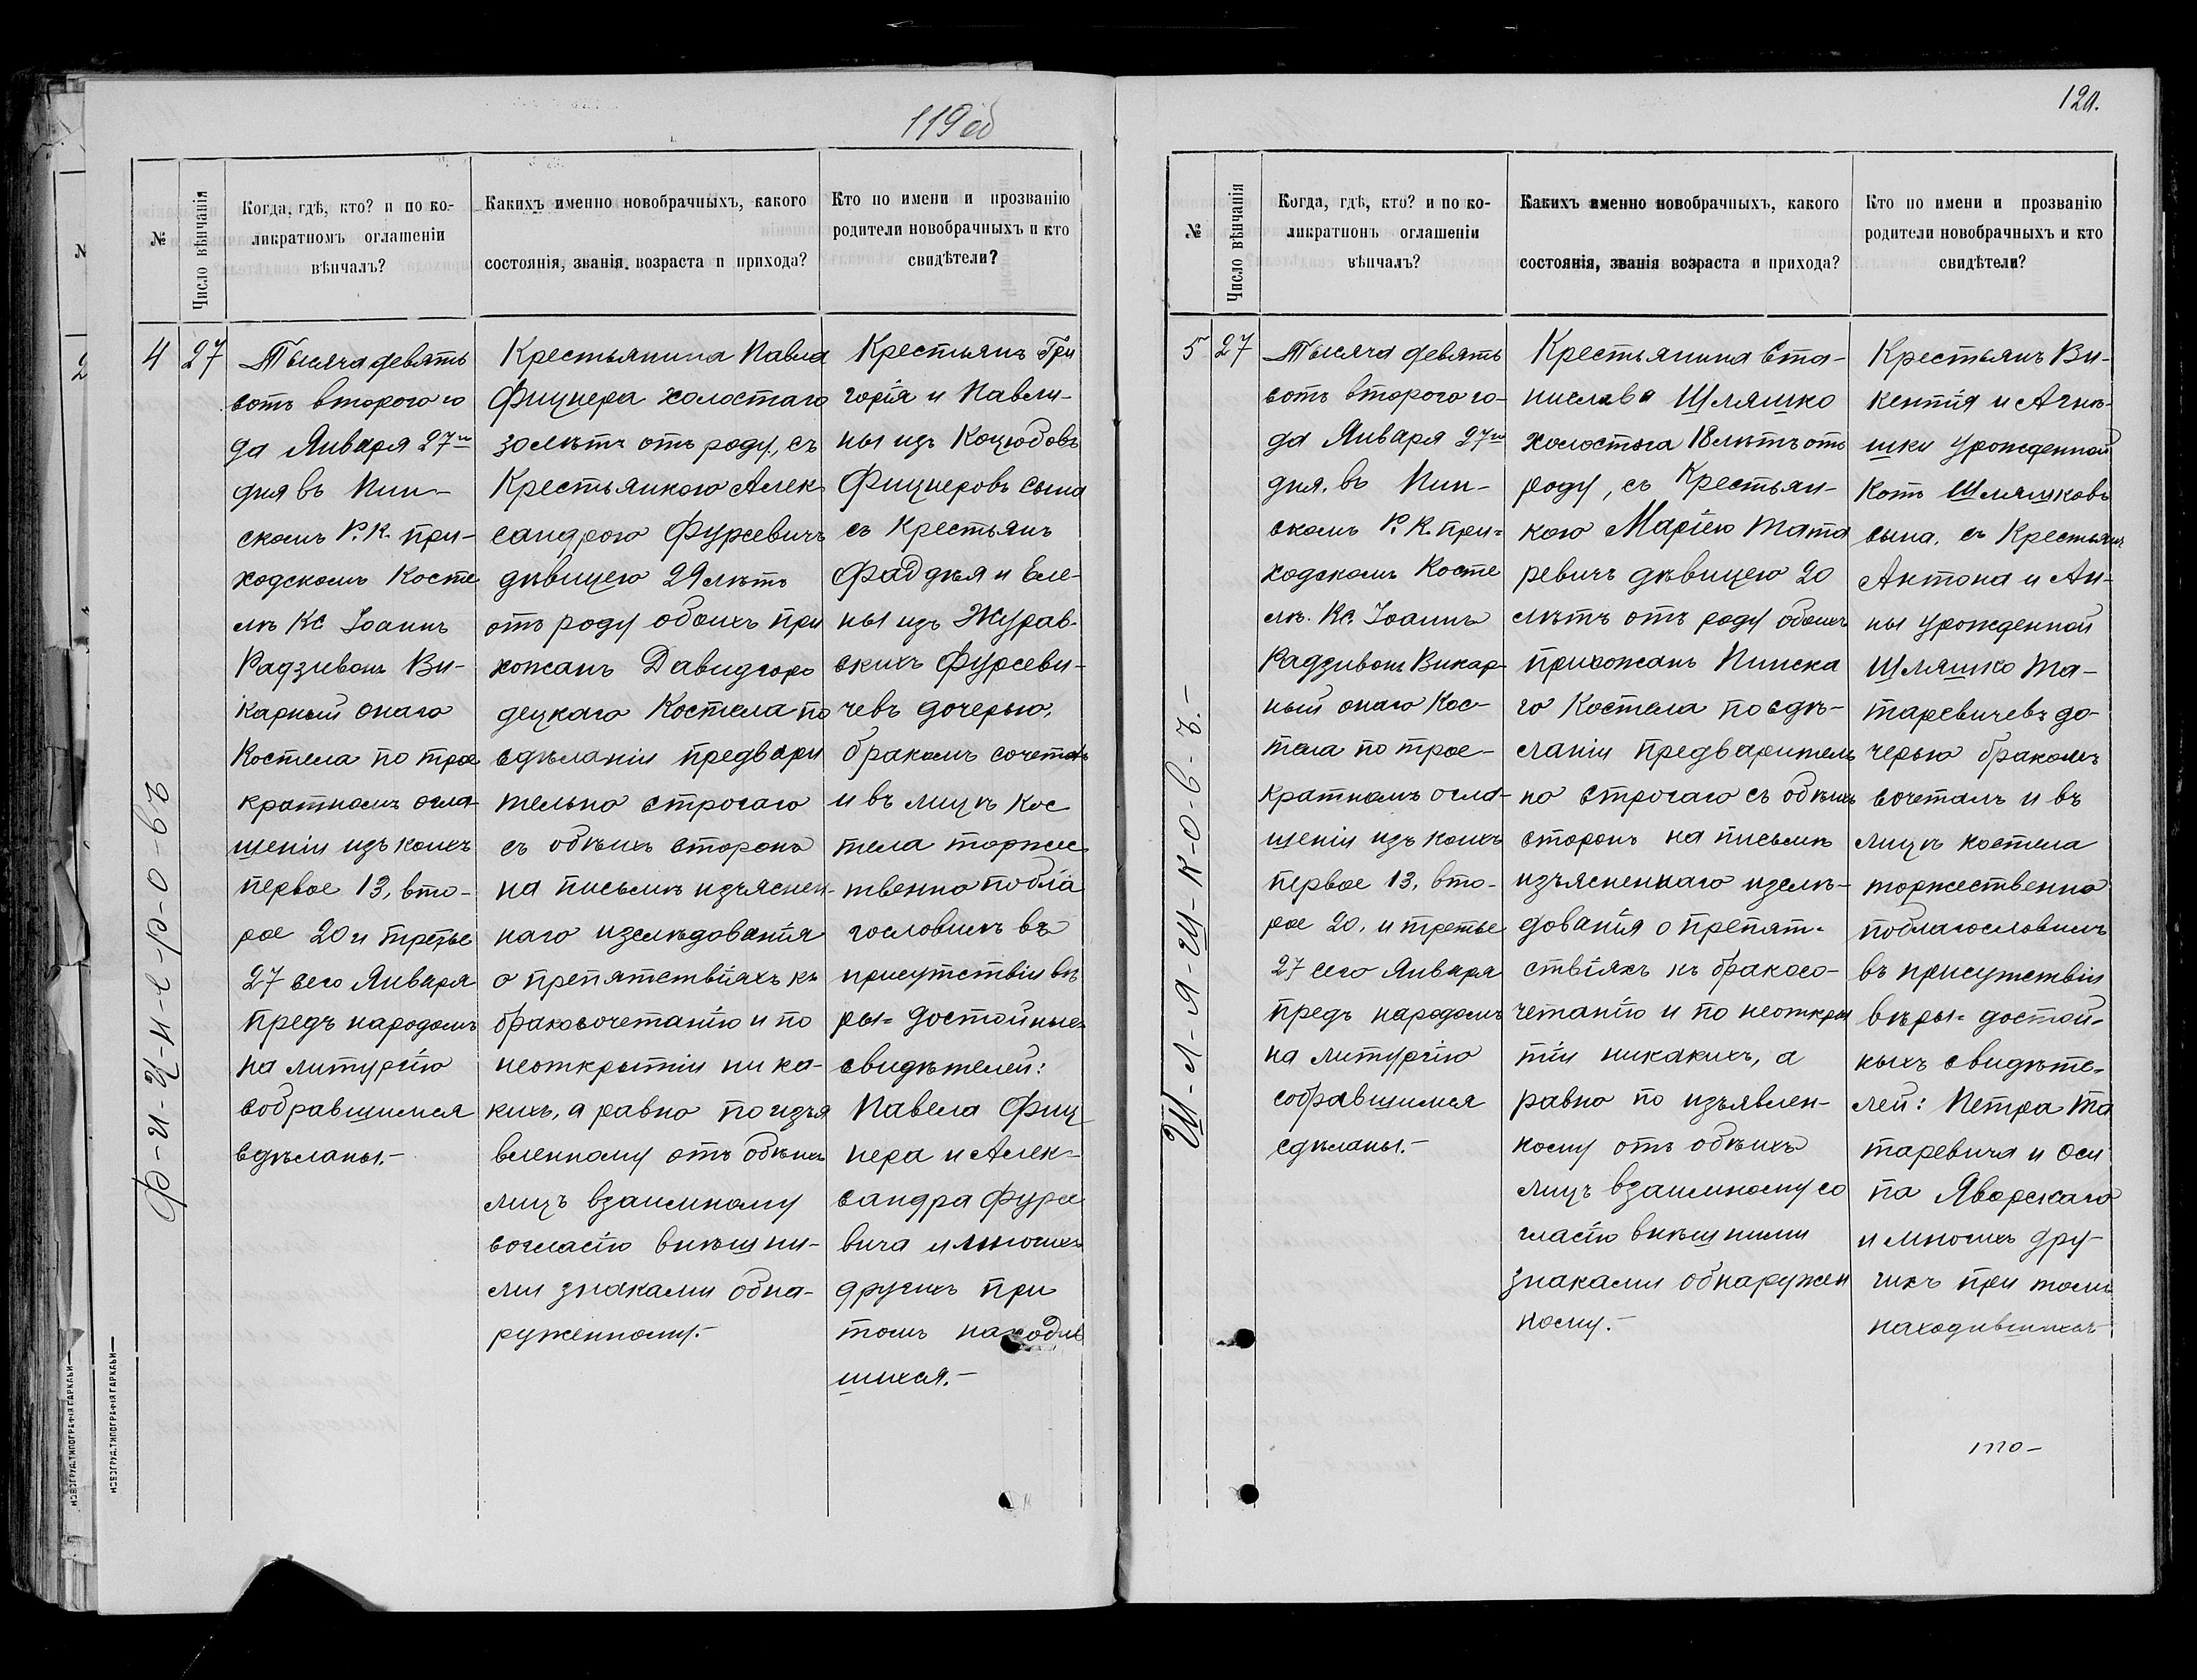 119об
№
Число вѣнчанія
Когда, гдѣ, кто? и по ко-
ликратномъ оглашеніи
вѣнчалъ?
Какихъ именно новобрачныхъ, какого
состоянія, званія. возраста и прихода?
Кто по имени и прозванію
родители новобрачныхъ и кто
свидѣтели?
4
27
Ф-и-ц-н-е-р-о-в-ъ
Тысяча девять
сотъ второго го
да Января 27го
дня въ Пин-
скомъ Р. К. при-
ходскомъ Косте
лѣ Кс Іоаннъ
Радзивонъ Ви-
карный онаго
Костела по трое
кратномъ огла-
шеніи изъ коихъ
первое 13, вто-
рое 20 и третье
27 сего Января
предъ народомъ
на литургію
собравшимся
сдѣланы.-
Крестьянина Павла
Фицнера холостаго
30 лѣтъ отъ роду, съ
Крестьянкою Алек
сандрою Фурсевичъ
дѣвицею 29 лѣтъ
отъ роду обоихъ при
хожанъ Давидгоро
децкаго Костела по
сдѣланіи предвари
тельно строгаго
съ обѣихъ сторонъ
на письмѣ изъяснен-
наго изслѣдованія
о препятствіяхъ къ
бракосочетанію и по
неоткрытіи ни ка-
кихъ, а равно по изъя
вленному отъ обѣихъ
лицъ взаимному
согласію внѣшни-
ми знаками обна-
руженному.-
Крестьянъ Гри
горія и Павли-
ны изъ Коцюбовъ
Фицнеровъ сына
съ Крестьянъ
Фаддѣя и Еле-
ны изъ Журав-
скихъ Фурсеви-
чевъ дочерью,
бракомъ сочеталъ
и въ лицѣ Кос
тела торжес
твенно побла
гословилъ въ
присутствіи вѣ
ры= достойныхъ
свидѣтелей:
Павела Фиц
нера и Алек-
сандра Фурсе
вича и многихъ
другихъ при
томъ находив
шихся.-
НОВОГРУД. ТИПОГРАФІЯ ГАРКАВИ
120.
№
Число вѣнчанія
Когда, гдѣ, кто? и по ко-
ликратномъ оглашеніи
вѣнчалъ?
Какихъ именно новобрачныхъ, какого
состоянія, званія возраста и прихода?
Кто по имени и прозванію
родители новобрачныхъ и кто
свидѣтели?
5
27
Ш-л-я-ш-к-о-в-ъ.-
Тысяча девять
сотъ второго го-
да Января 27го
дня. въ Пин-
скомъ Р. К. при=
ходскомъ Косте
лѣ. Кс. Іоаннъ
Радзивонъ Викар-
ный онаго Кос-
тела по трое-
кратномъ огла-
шеніи изъ коихъ
первое 13, вто-
рое 20, и третье
27 сего Января
предъ народомъ
на литургію
собравшимся
сдѣланы.-
Крестьянина Ста-
нислава Шляшко
холостога 18 лѣтъ отъ
роду, съ Крестьян-
кою Маріею Тата
ревичъ дѣвицею 20
лѣтъ отъ роду обоихъ
прихожанъ Пинска
го Костела по сдѣ-
ланіи предваритель
но строгаго съ обѣихъ
сторонъ на письмѣ
изъясненнаго изслѣ-
дованія о препят-
ствіяхъ къ бракосо-
четанію и по неоткры
тіи никакихъ, а
равно по изъявлен-
ному отъ обѣихъ
лицъ взаимному со
гласію внѣшними
знаками обнаружен
ному.-
Крестьянъ Ви-
кентія и Агнѣ-
шки урожденной
Котъ Шляшковъ
сына, съ Крестьянъ
Антона и Ан-
ны урожденной
Шляшко Та-
таревичевъ до-
черью бракомъ
сочеталъ и въ
лицѣ костела
торжественно
поблагословилъ
въ присутствіи
вѣры= достой-
ныхъ свидѣте-
лей: Петра Та
таревича и Оси
па Яворскаго
и многихъ дру-
гихъ при томъ
находившихся
что-